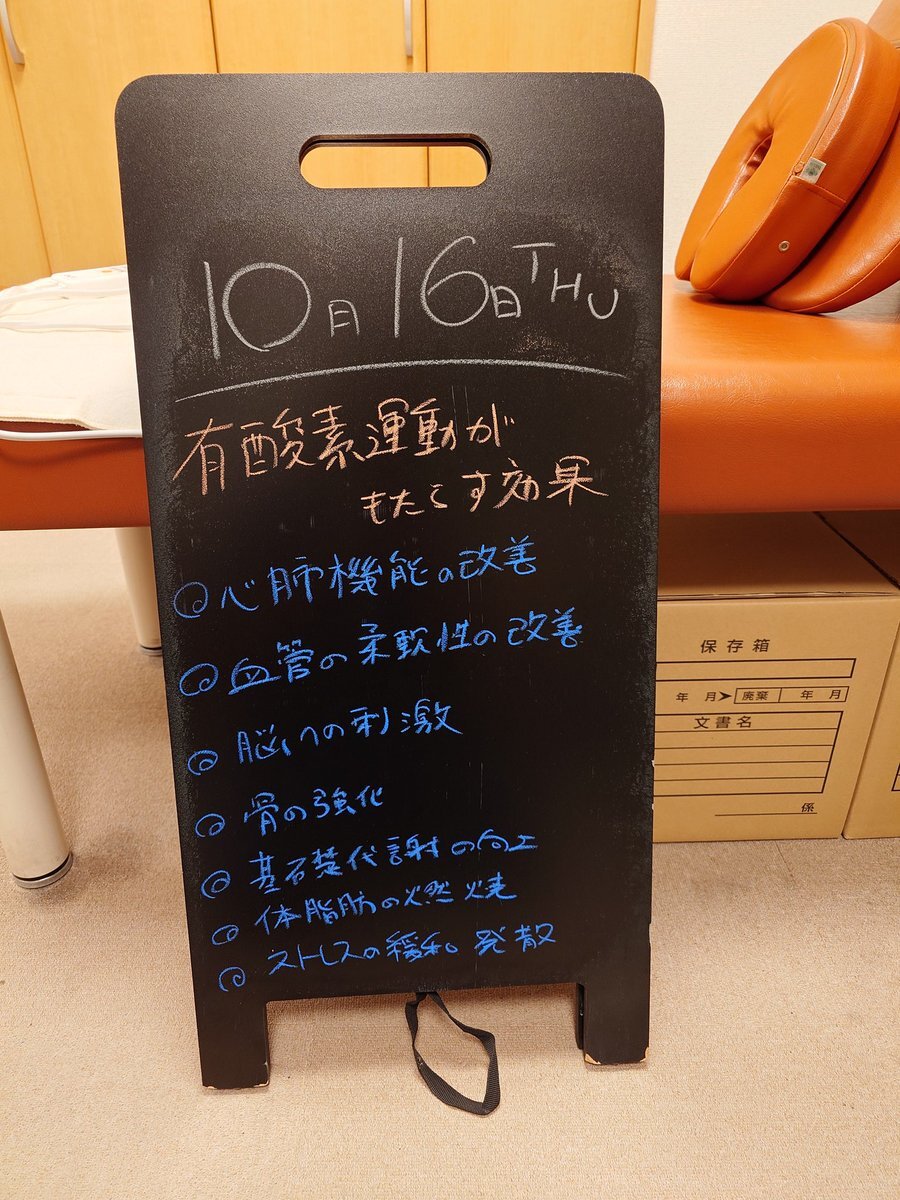 10月16日THU
有酸素運動が
もたらす効果
◎心肺機能の改善
◎血管の柔軟性の改善
◎脳への刺激
◎骨の強化
◎基礎代謝の向上
◎体脂肪の燃焼
◎ストレスの緩和。発散
保存箱
年 月➤廃棄 年 月
文書名
係